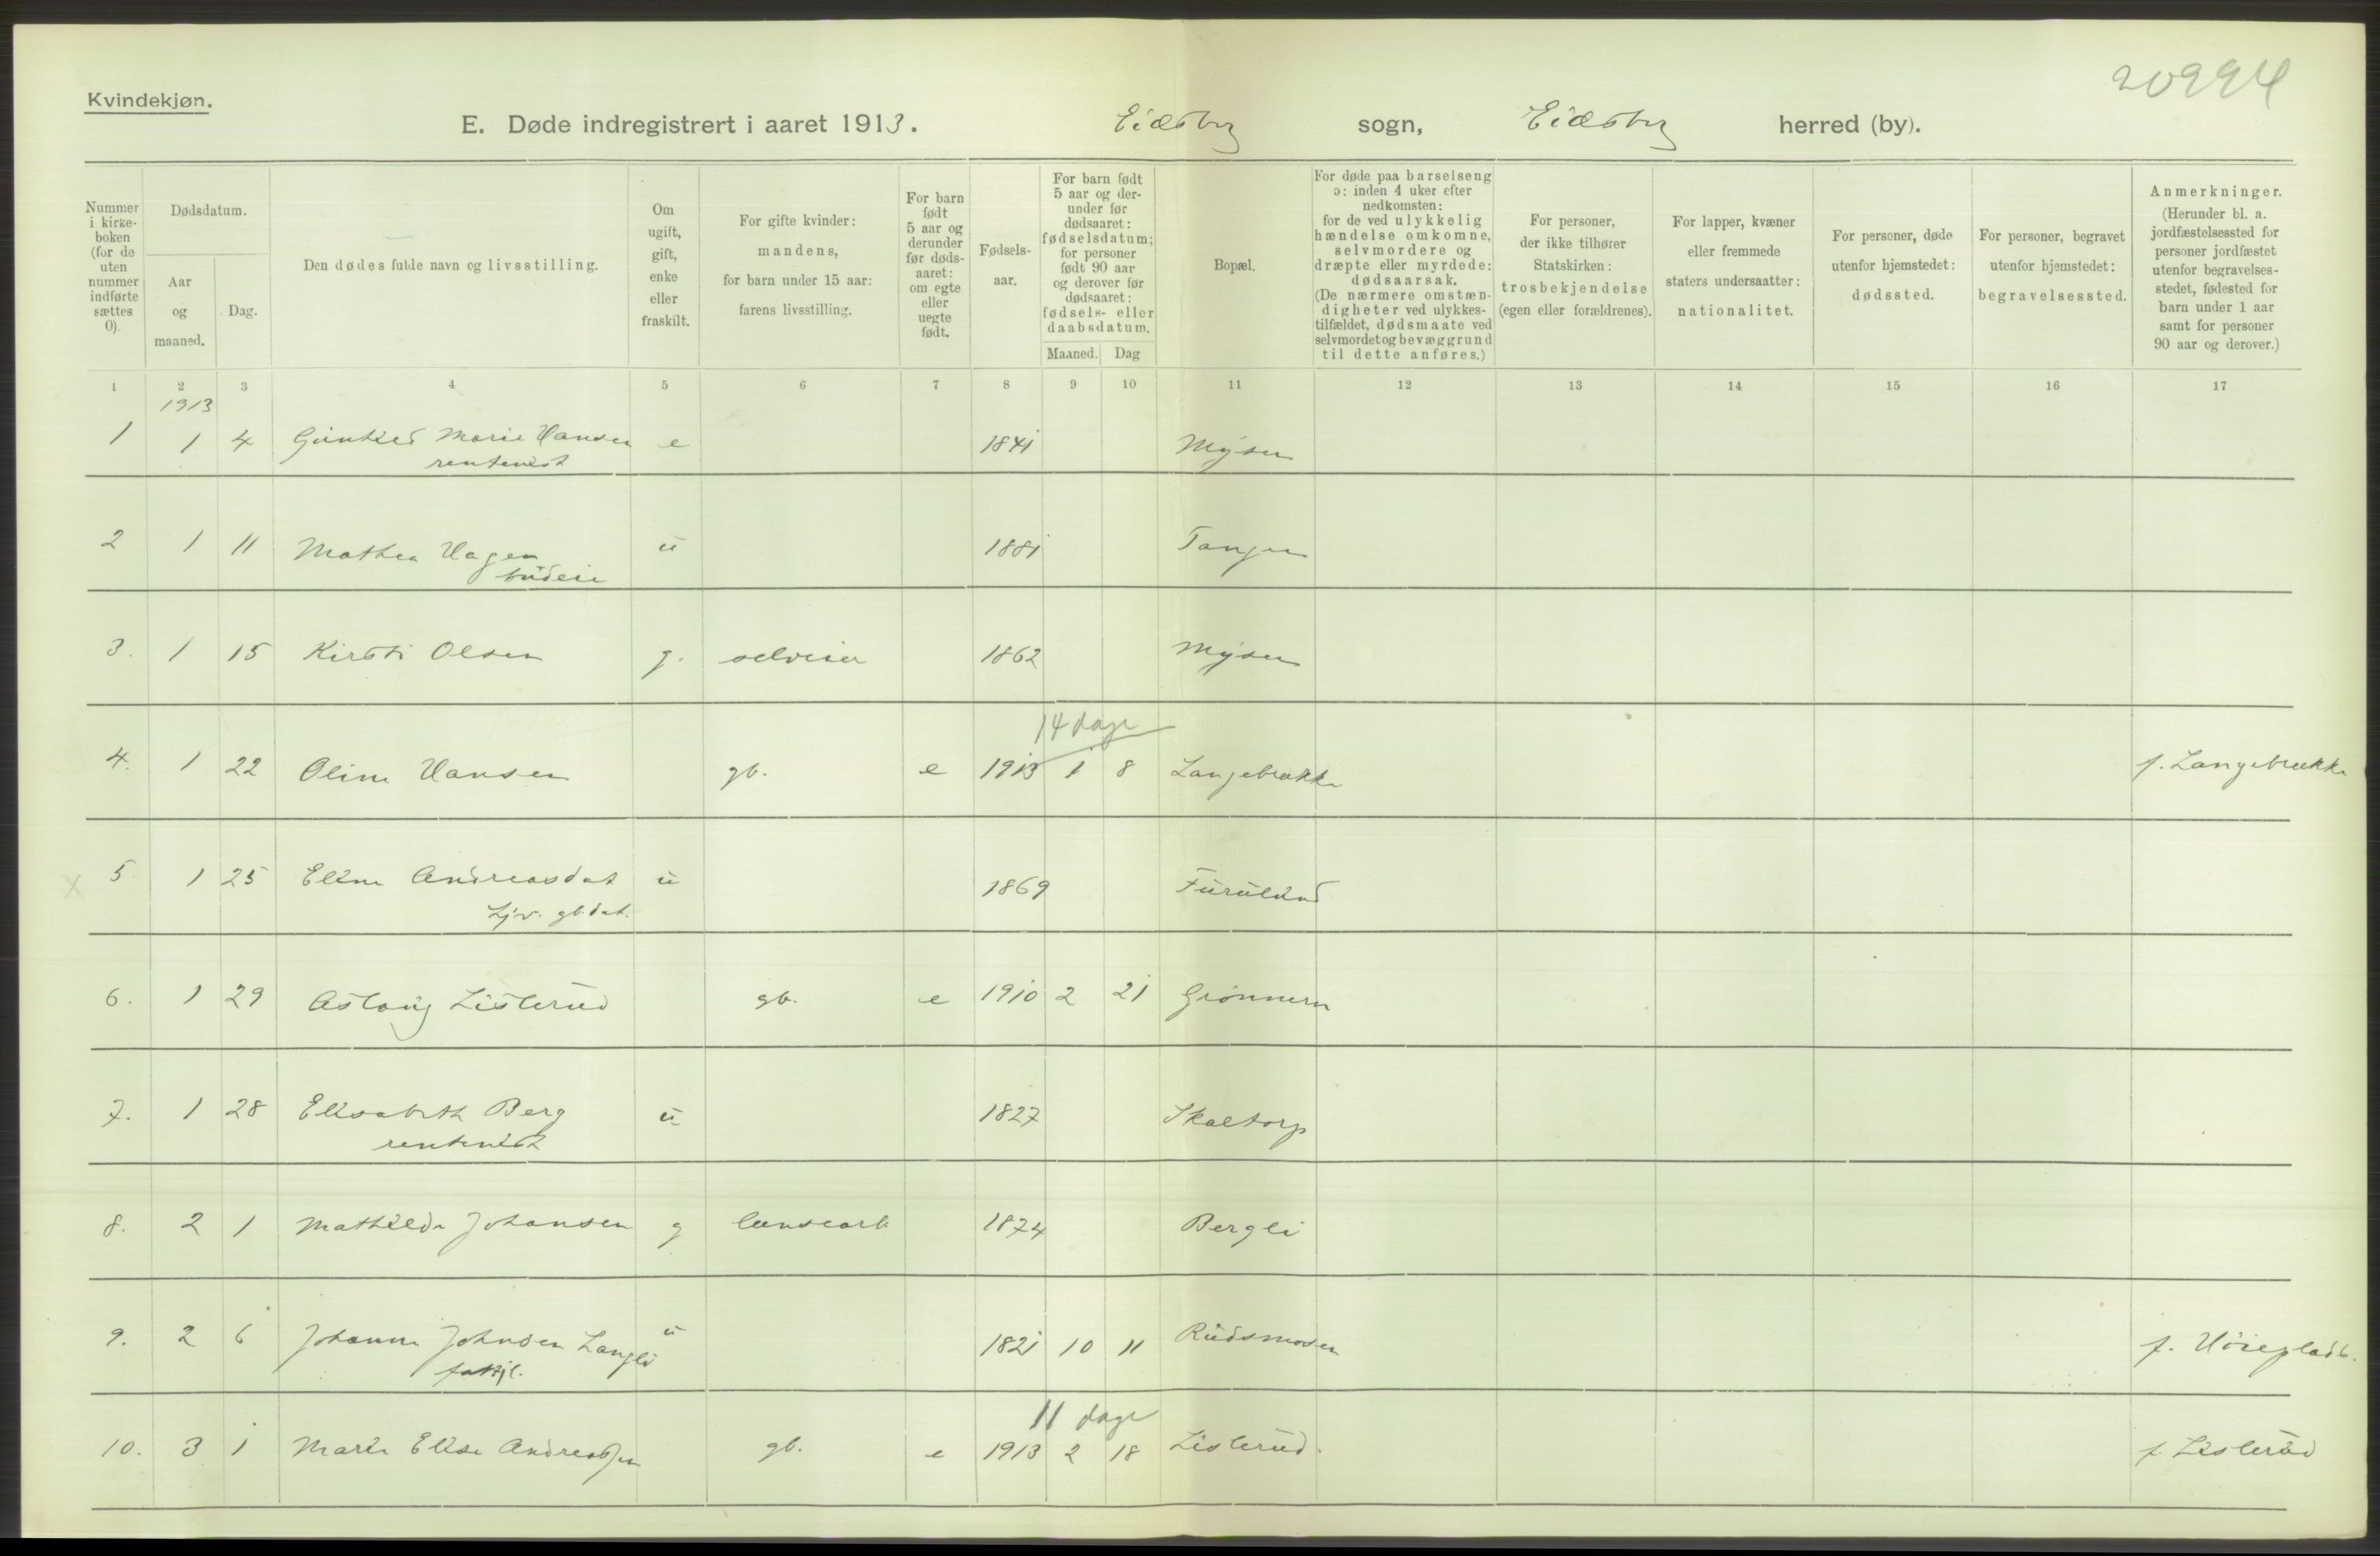 20994
Kvindekjøn.
E. Døde indregistrert i aaret 1913. Eidsberg sogn, Eidsberg herred (by).
Nummer i kirke-boken (for de uten nummer indførte sættes 0).
Dødsdatum.
Aar og maaned.
Dag.
Den dødes fulde navn og livsstilling.
Om ugift, gift, enke eller fraskilt.
For gifte kvinder: mandens, for barn under 15 aar: farens livsstilling.
For barn født 5 aar og derunder før døds-aaret: om egte eller uegte født.
Fødsels-aar.
For barn født 5 aar og der-under før dødsaaret: fødselsdatum; for personer født 90 aar og derover før dødsaaret: fødsels- eller daabsdatum.
Maaned. Dag
Bopæl.
For døde paa barselseng ɔ: inden 4 uker efter nedkomsten: for de ved ulykkelig hændelse omkomne, selvmordere og dræpte eller myrdede: dødsaarsak. (De nærmere omstæn-digheter ved ulykkes-tilfældet, dødsmaate ved selvmordet og bevæggrund til dette anføres.)
For personer, der ikke tilhører Statskirken: trosbekjendelse (egen eller forældrenes).
For lapper, kvæner eller fremmede staters undersaatter: nationalitet.
For personer, døde utenfor hjemstedet: dødssted.
For personer, begravet utenfor hjemstedet: begravelsessted.
Anmerkninger. (Herunder bl. a. jordfæstelsessted for personer jordfæstet utenfor begravelses-stedet, fødested for barn under 1 aar samt for personer 90 aar og derover.)
1 2 3 4 5 6 7 8 9 10 11 12 13 14 15 16 17
1913
1 1 4 Marie Hansen e 1841 Mysen
rentenist
2 1 11 Mathea Hagen u 1881 Tangen
budeie
3. 1 15 Kirsti Olsen g. selveier 1862 Mysen
14 dage
4. 1 22 Oline Hansen gb. e 1913 1 8 Langebrække f. Langebrække
5 1 25 Eline Andreasdat u 1869 Furulund
gb.dat.
6. 1 29 Aslaug Listerud gb. e 1910 2 21 Grönnern
7. 1 28 Elisabeth Berg u 1827 Skaltorp
rentenist
8. 2 1 Mathilde Johansen g lønsearb 1874 Bergli
9. 2 6 Johanne Johnsen Langli u 1821 10 11 Rudsmosen f.
11 dage
10. 3 1 Marie Elise Andreassen gb. e 1913 2 18 Listerud. f Listerud